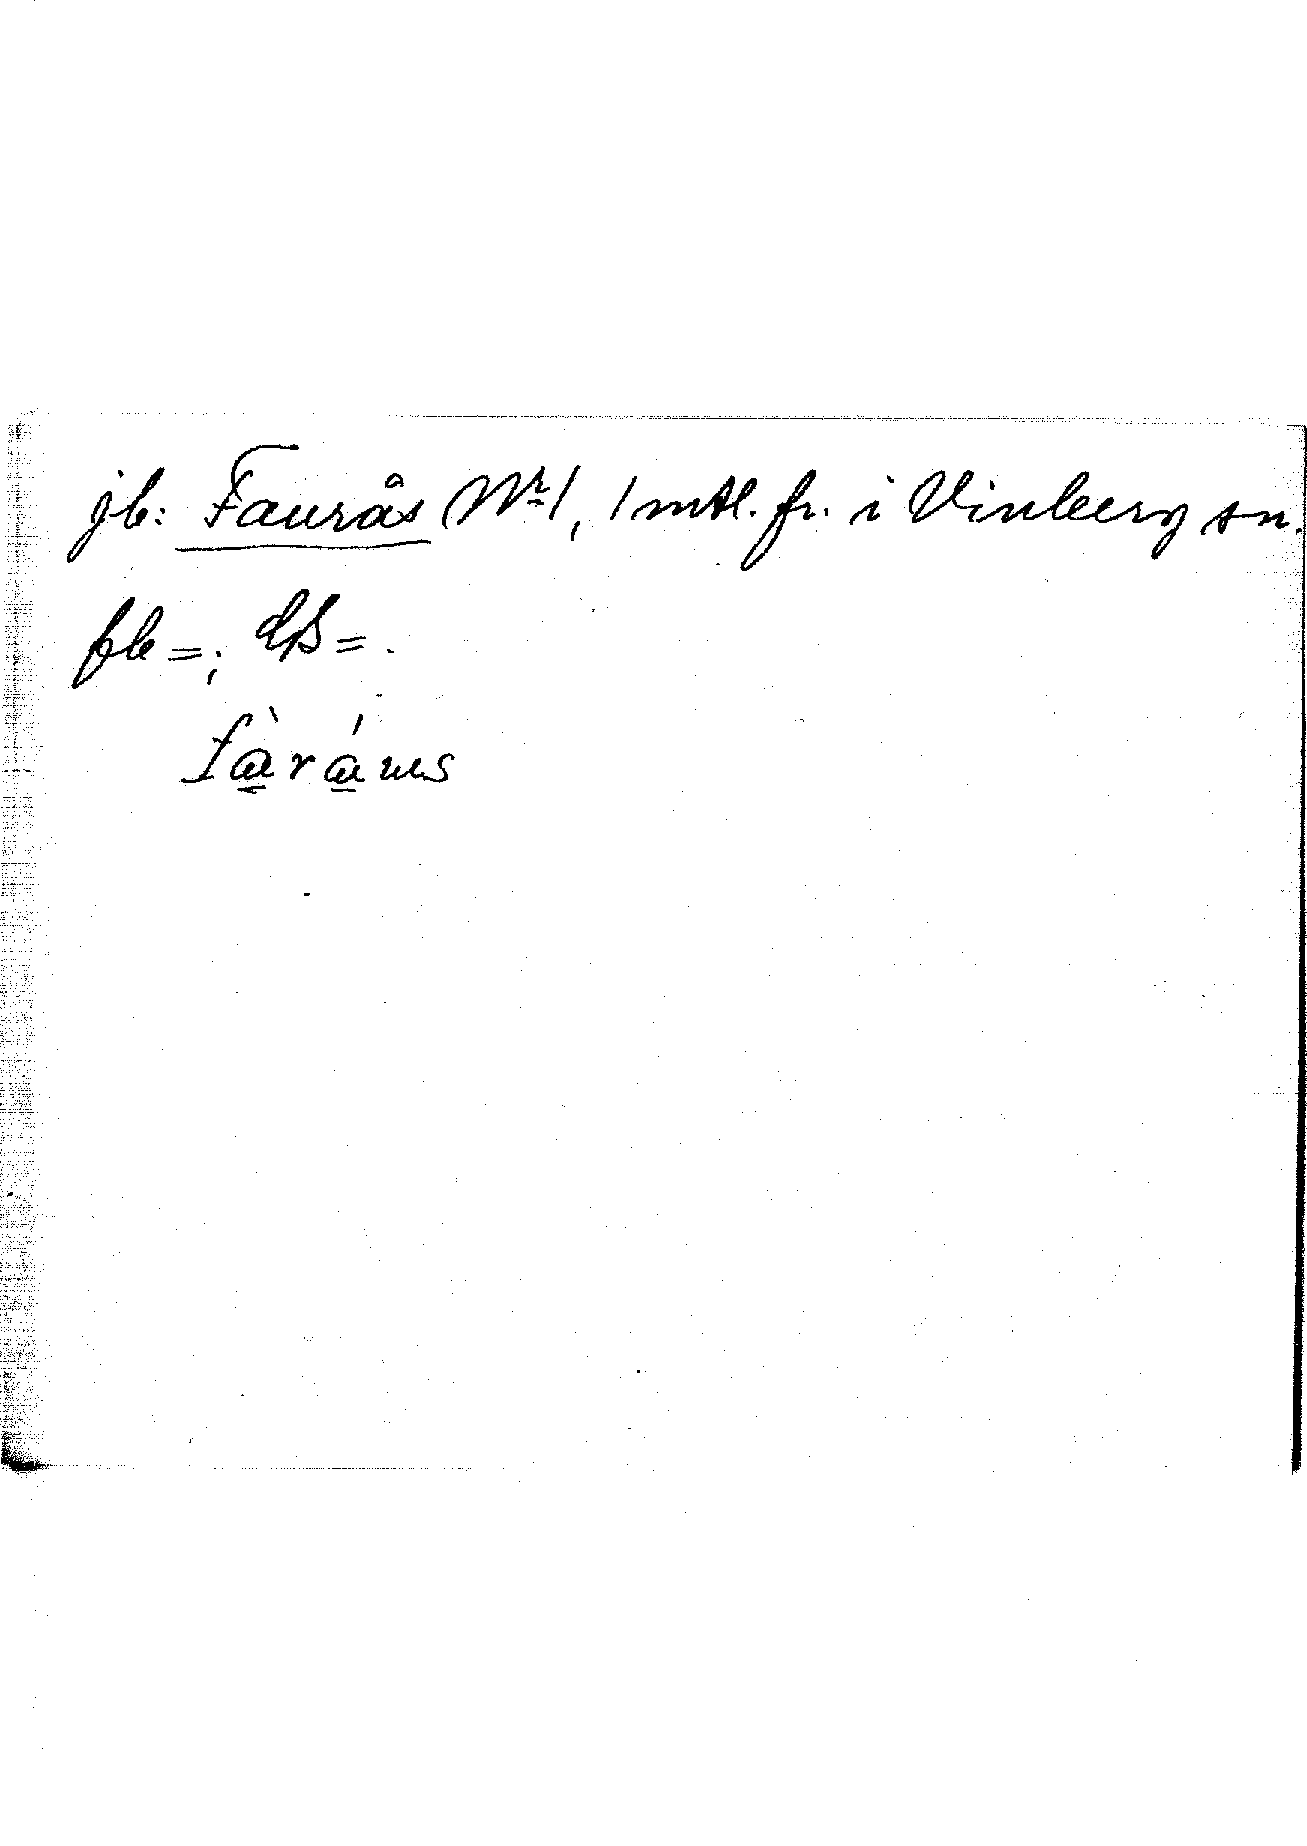 jb: Faurås Nr 1, 1 mtl. fr. i Vinberg sn.
fb =; GS =.